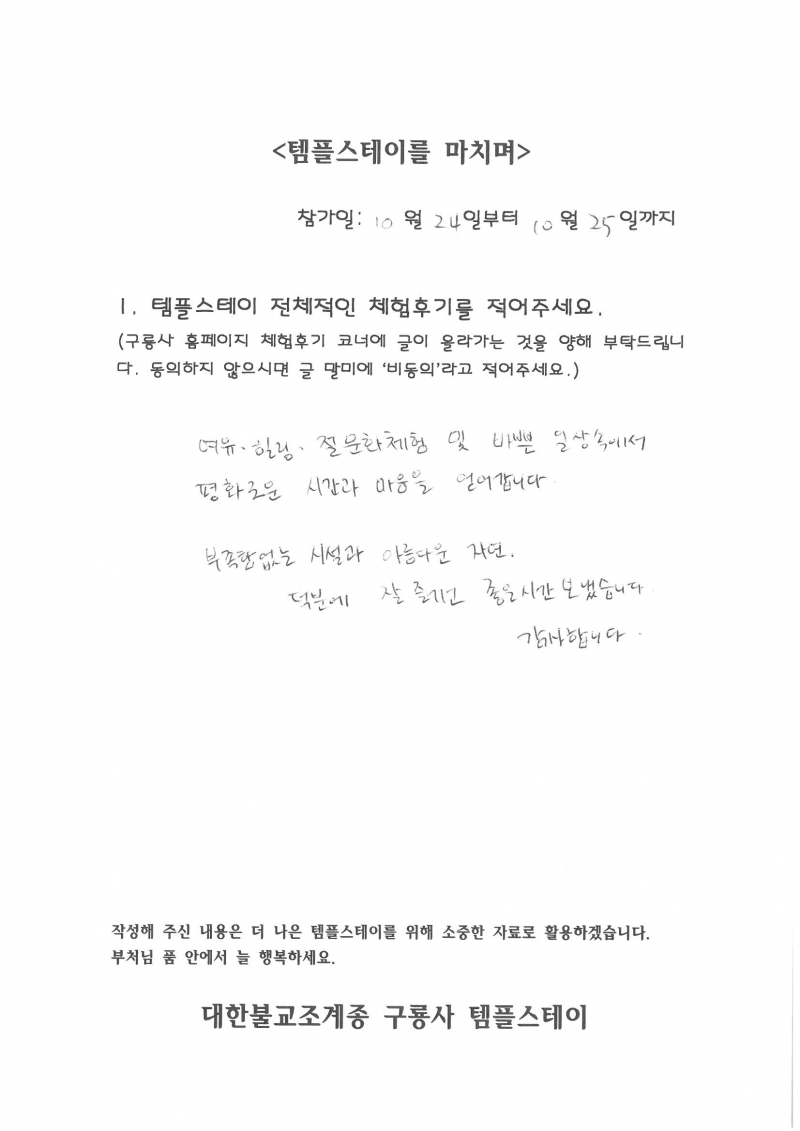 <템플스테이를 마치며>
참가일: 10 월 24일부터 10 월 25일까지
1. 템플스테이 전체적인 체험후기를 적어주세요.
(구룡사 홈페이지 체험후기 코너에 글이 올라가는 것을 양해 부탁드립니
다. 동의하지 않으시면 글 말미에 '비동의'라고 적어주세요.)
여유·힐링·절문화체험 및 바쁜 일상속에서
평화로운 시간과 마음을 얻어갑니다.
부족함없는 시설과 아름다운 자연.
덕분에 잘 즐기고 좋은시간 보냈습니다.
감사합니다.
작성해 주신 내용은 더 나은 템플스테이를 위해 소중한 자료로 활용하겠습니다.
부처님 품 안에서 늘 행복하세요.
대한불교조계종 구룡사 템플스테이